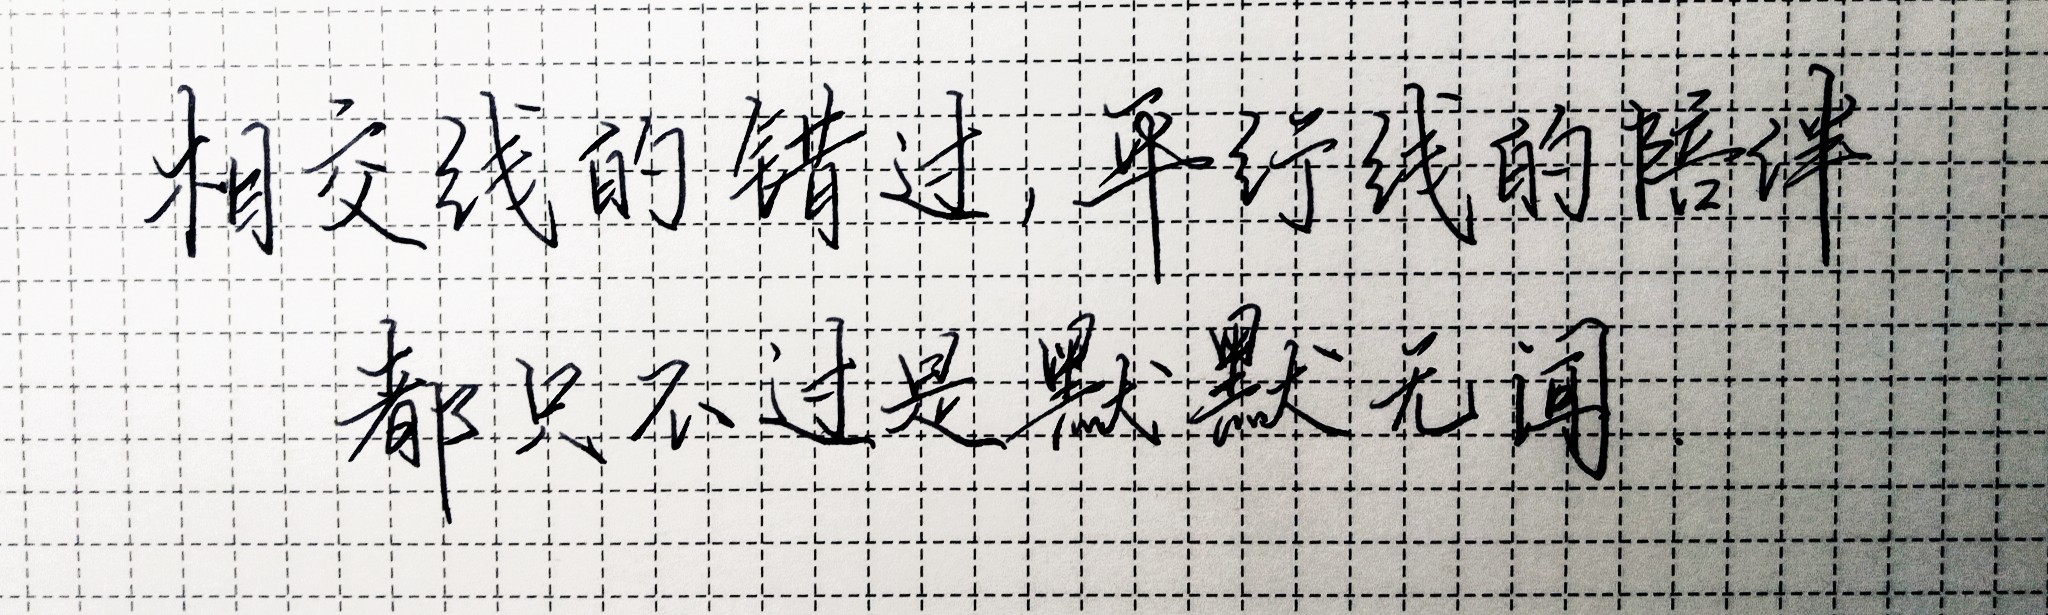 相交线的错过，平行线的陪伴
都只不过是默默无闻.